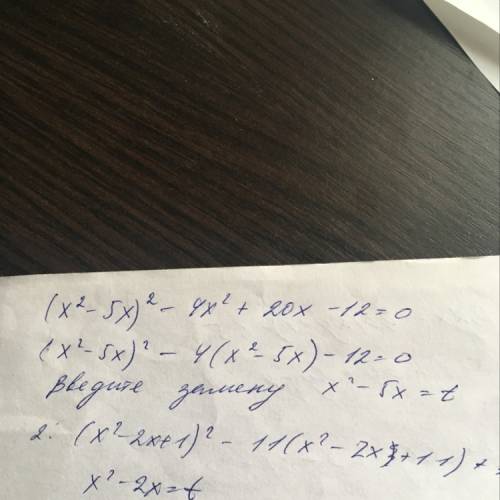 (x²-5x)² - 4x² + 20x - 12 = 0
(x²-5x)² - 4(x²-5x) - 12 = 0
Введите замену x²-5x = t
2. (x²-2x+1)² - 11(x²-2x+1) +
x²-2x = t